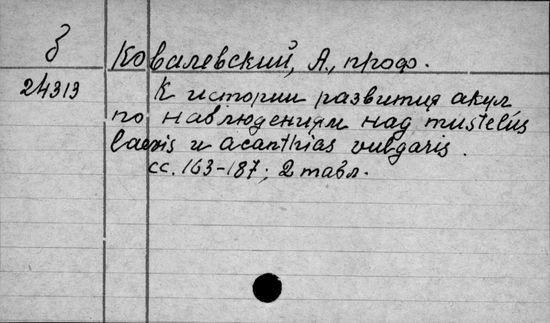 З
Ковалевский, А., проф.
24313
К истории развития акул
по наблюдениям над mustelus
laevis и acanthias vulgaris.
сс. 163-187; 2 табл.